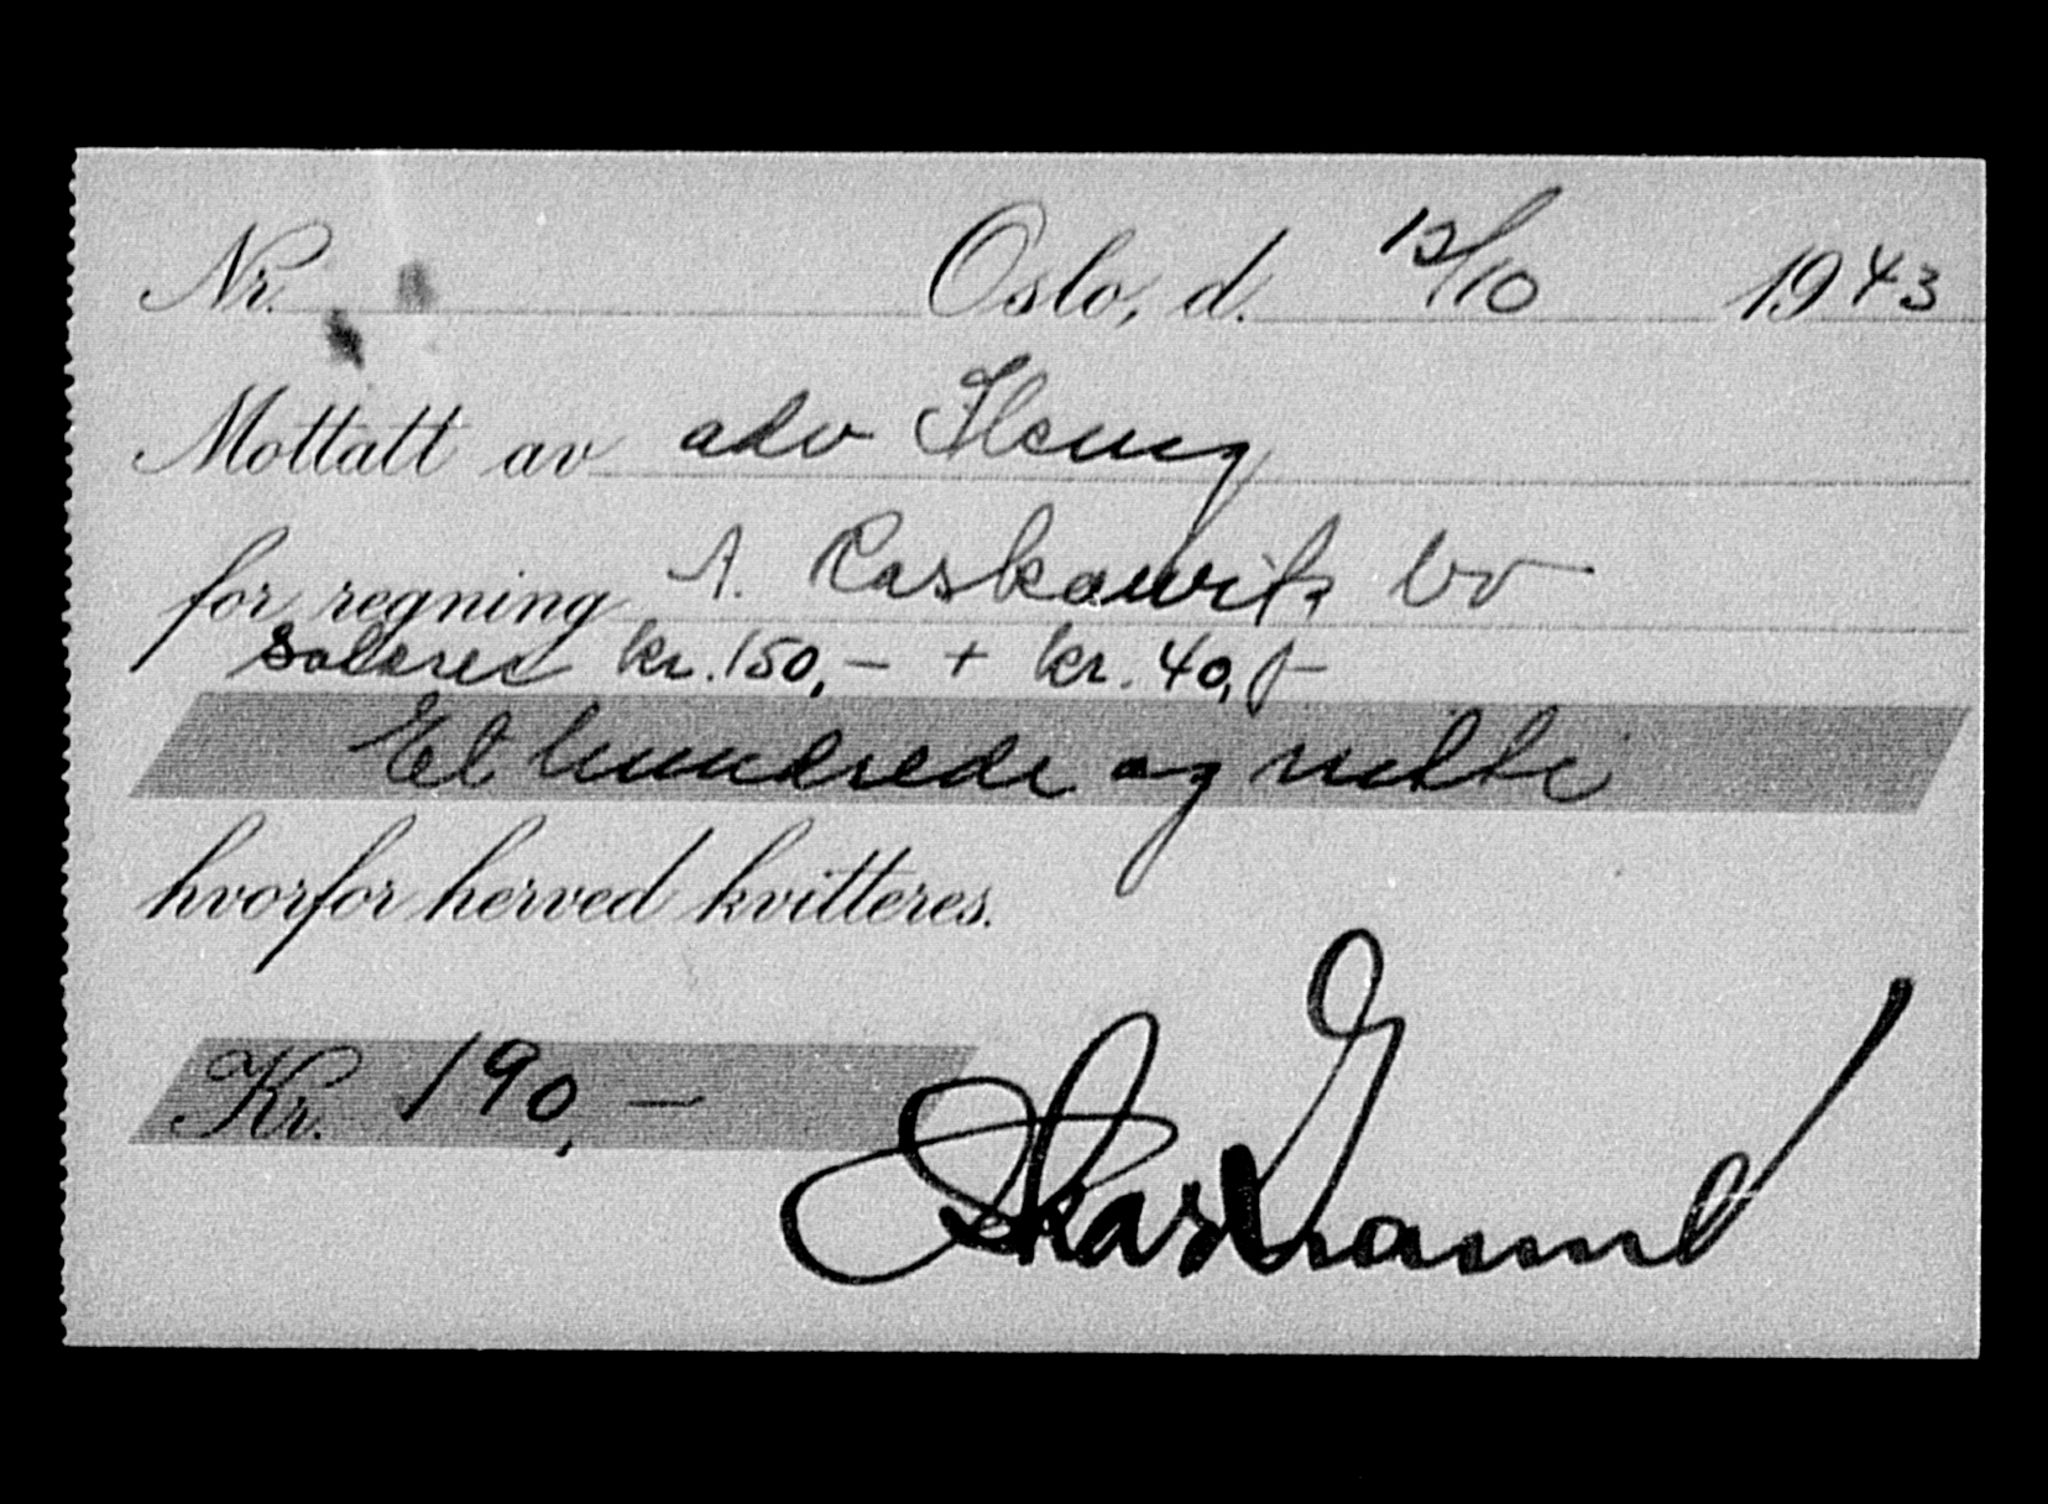 Nr. Oslo, d. 12/10 1943
Mottatt av adv
for regning A. Raskowitz bo
salær kr. 150,- + kr. 40,-
Et hundrede og nitti
hvorfor herved kvitteres.
Kr. 190,-